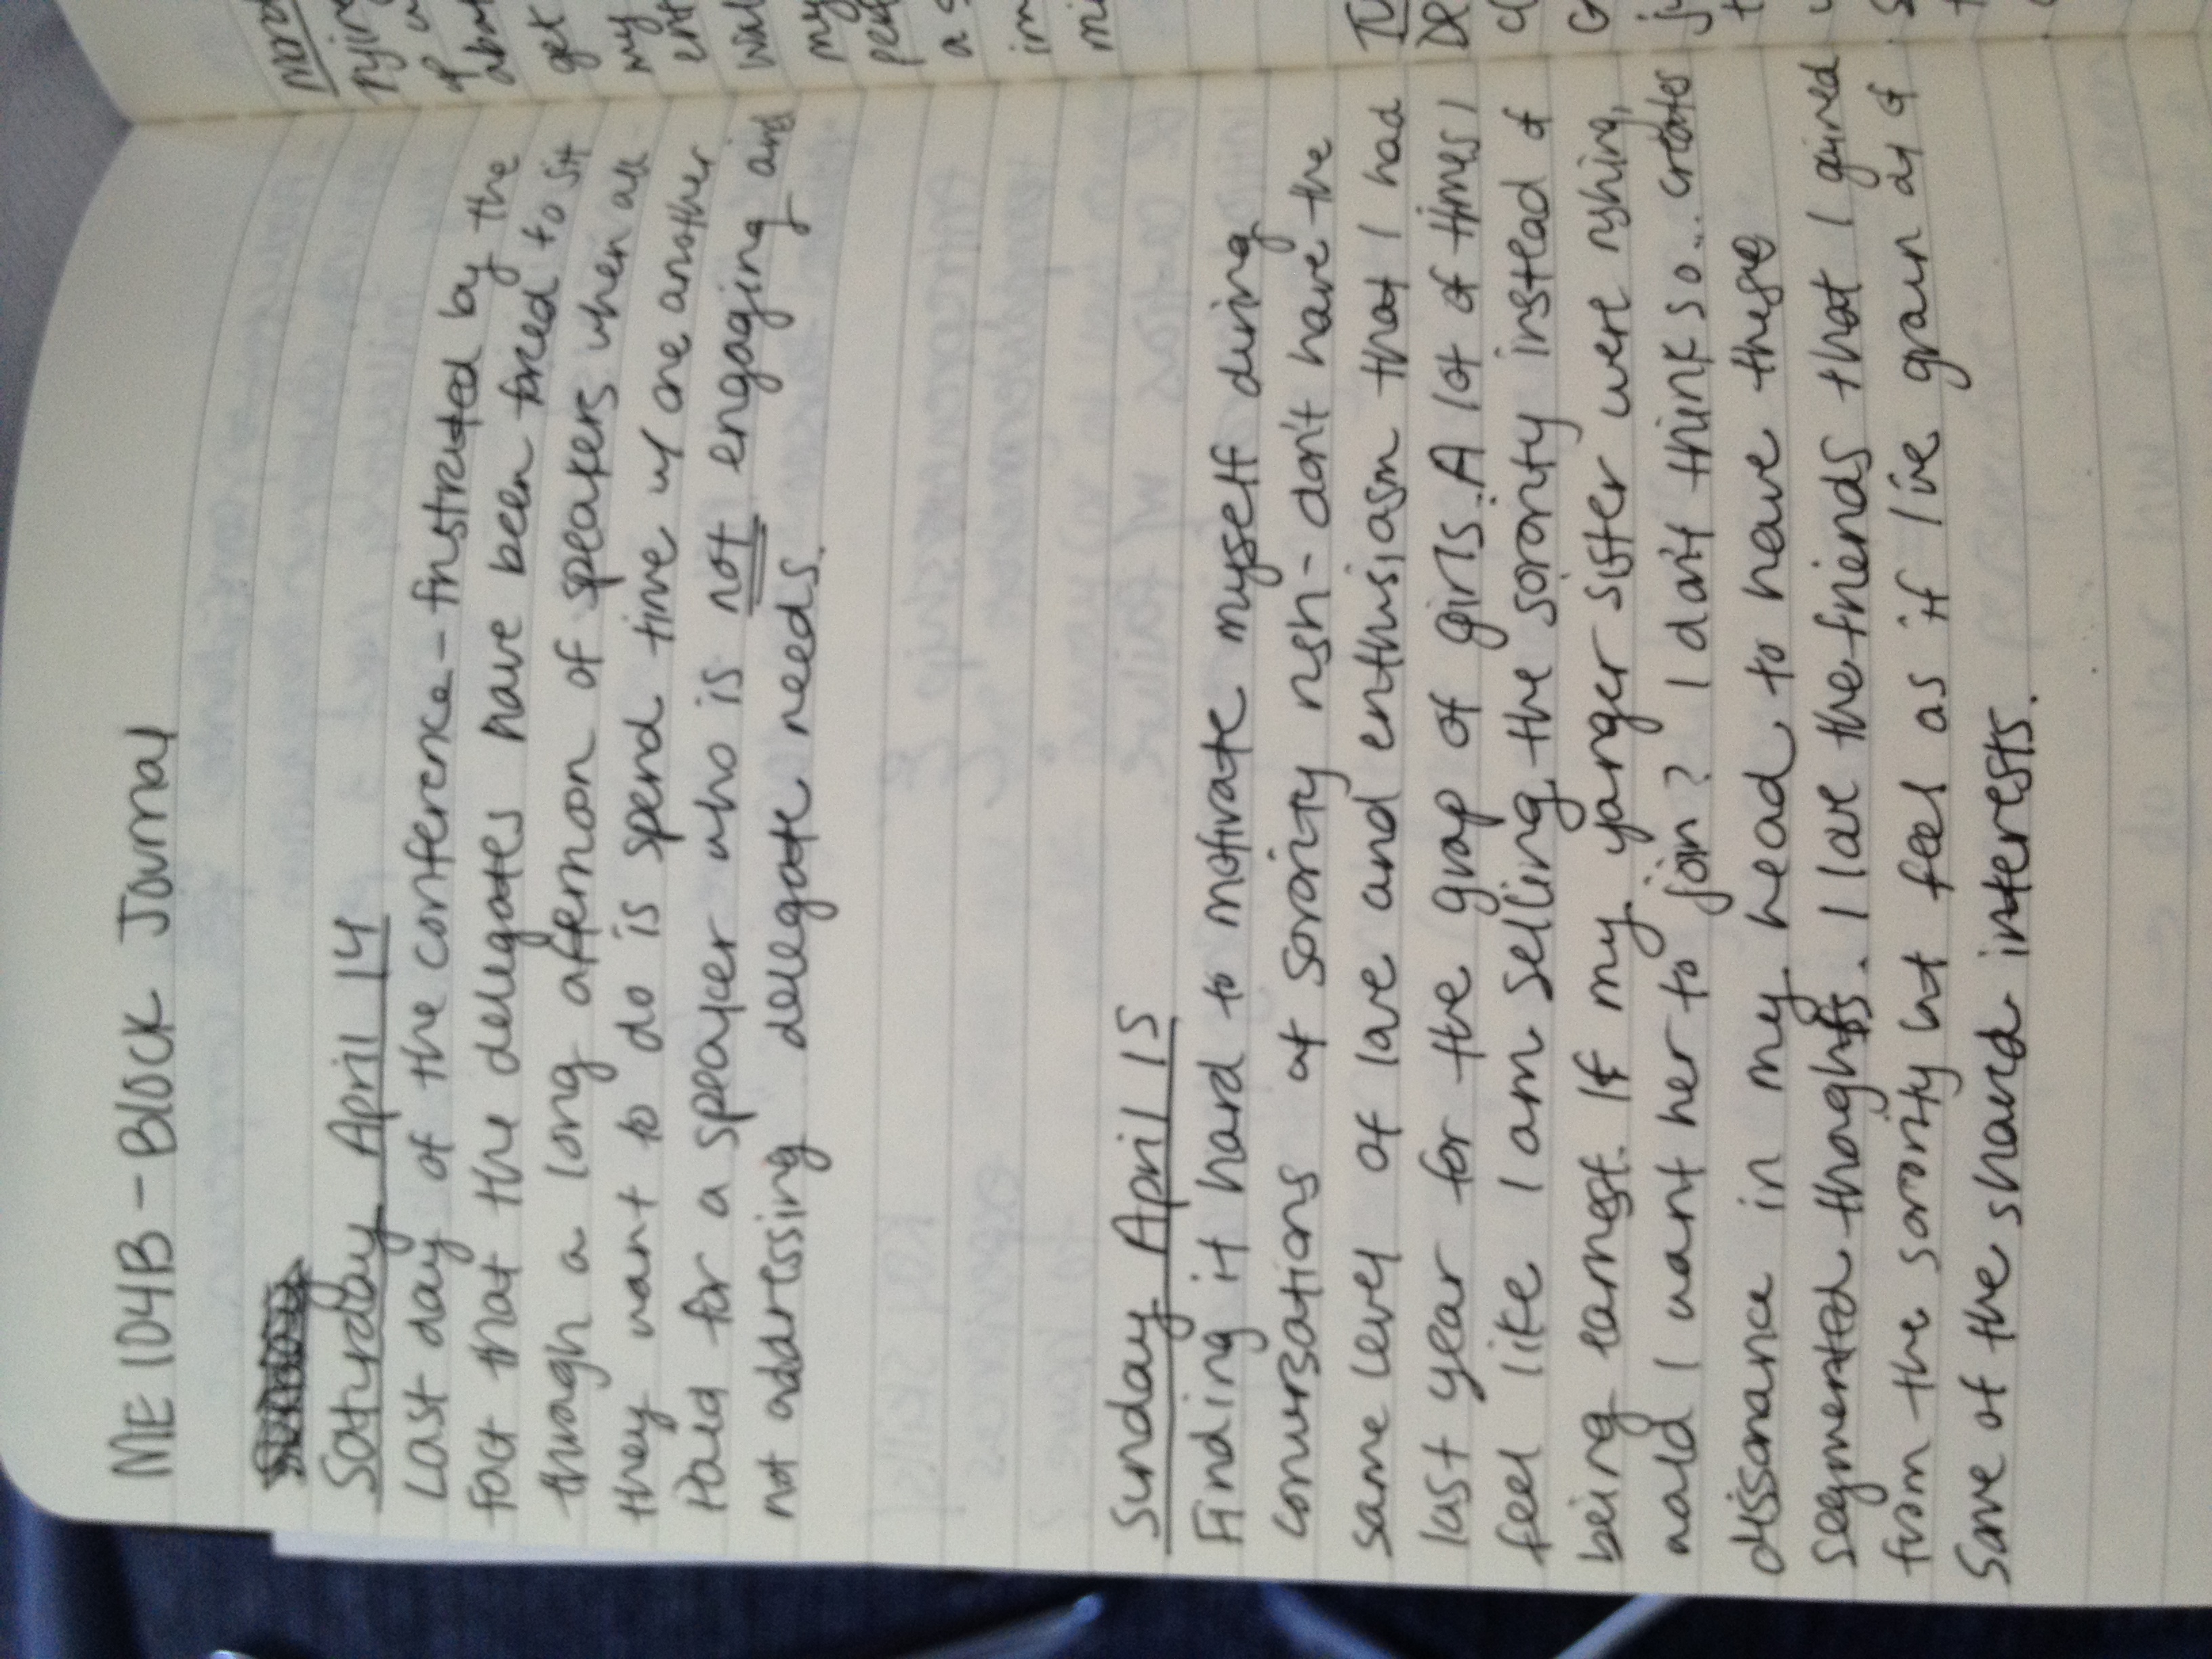 ME 104B - Block Journal
Saturday April 14
Last day of the conference - frustrated by the
fact that the delegates have been forced to sit
through a long afternoon of speakers when all
they want to do is spend time w/ one another
Paid for a speaker who is not engaging and
not addressing delegate needs.
Sunday April 15
Finding it hard to motivate myself during
conversations at sorority rush - don't have the
same level of love and enthusiasm that I had
last year for the group of girls. A lot of times I
feel like I am selling the sorority instead of
being earnest. If my younger sister were rushing,
would I want her to join? I don't think so... creates
dissonance in my head to have these
segmented thoughts. I love the friends that I gained
from the sorority but feel as if I've grown out of
some of the shared interests.
get
my
a